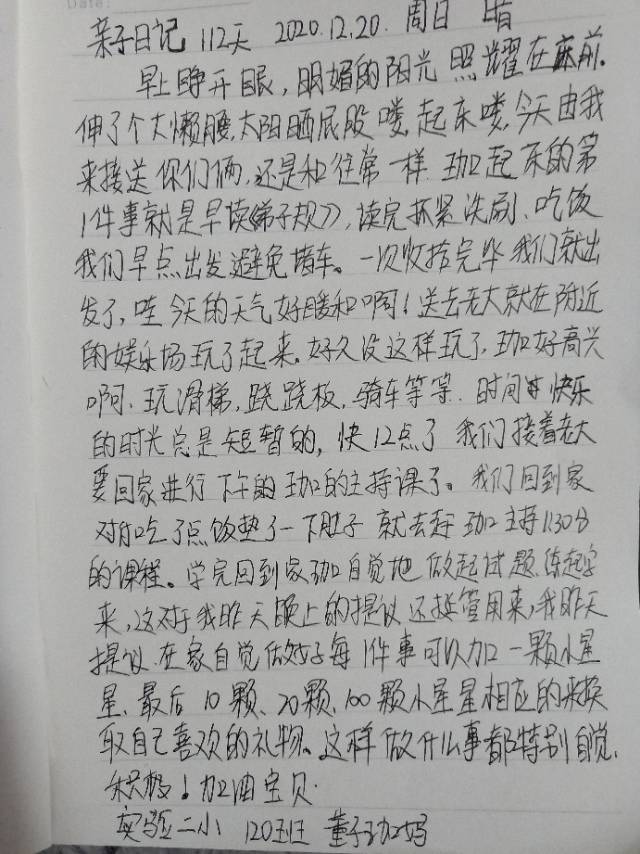 Date:
亲子日记 112天 2020.12.20. 周日 晴
早上睁开眼，明媚的阳光 照耀在床前.
伸了个大懒腰,太阳晒屁股 喽,起床喽,今天由我
来接送 你们俩,还是和往常一样. 珈起床的第
1件事就是早读《弟子规》,读完抓紧洗刷、吃饭
我们早点出发避免堵车。一切收拾完毕我们就出
发了,哇 今天的天气好暖和啊！送去老大就在附近
的娱乐场玩了起来.好久没这样玩了,珈好高兴
啊.玩滑梯,跷跷板,骑车等等.时间 快乐
的时光总是短暂的,快12点了 我们接着老大
要回家进行下午的珈的主持课了。我们回到家
对付吃了点饭垫了一下肚子 就去赶珈主持1:30分
的课程。学完回到家珈自觉地 做起试题,练起字
来,这对于我昨天晚上的提议还挺管用来,我昨天
提议 在家自觉做好每1件事可以加一颗小星
星,最后10颗、20颗、100颗小星星相应的来换
取自己喜欢的礼物。这样做什么事都特别自觉,
积极！加油宝贝.
实验二小 120班 董子珈妈